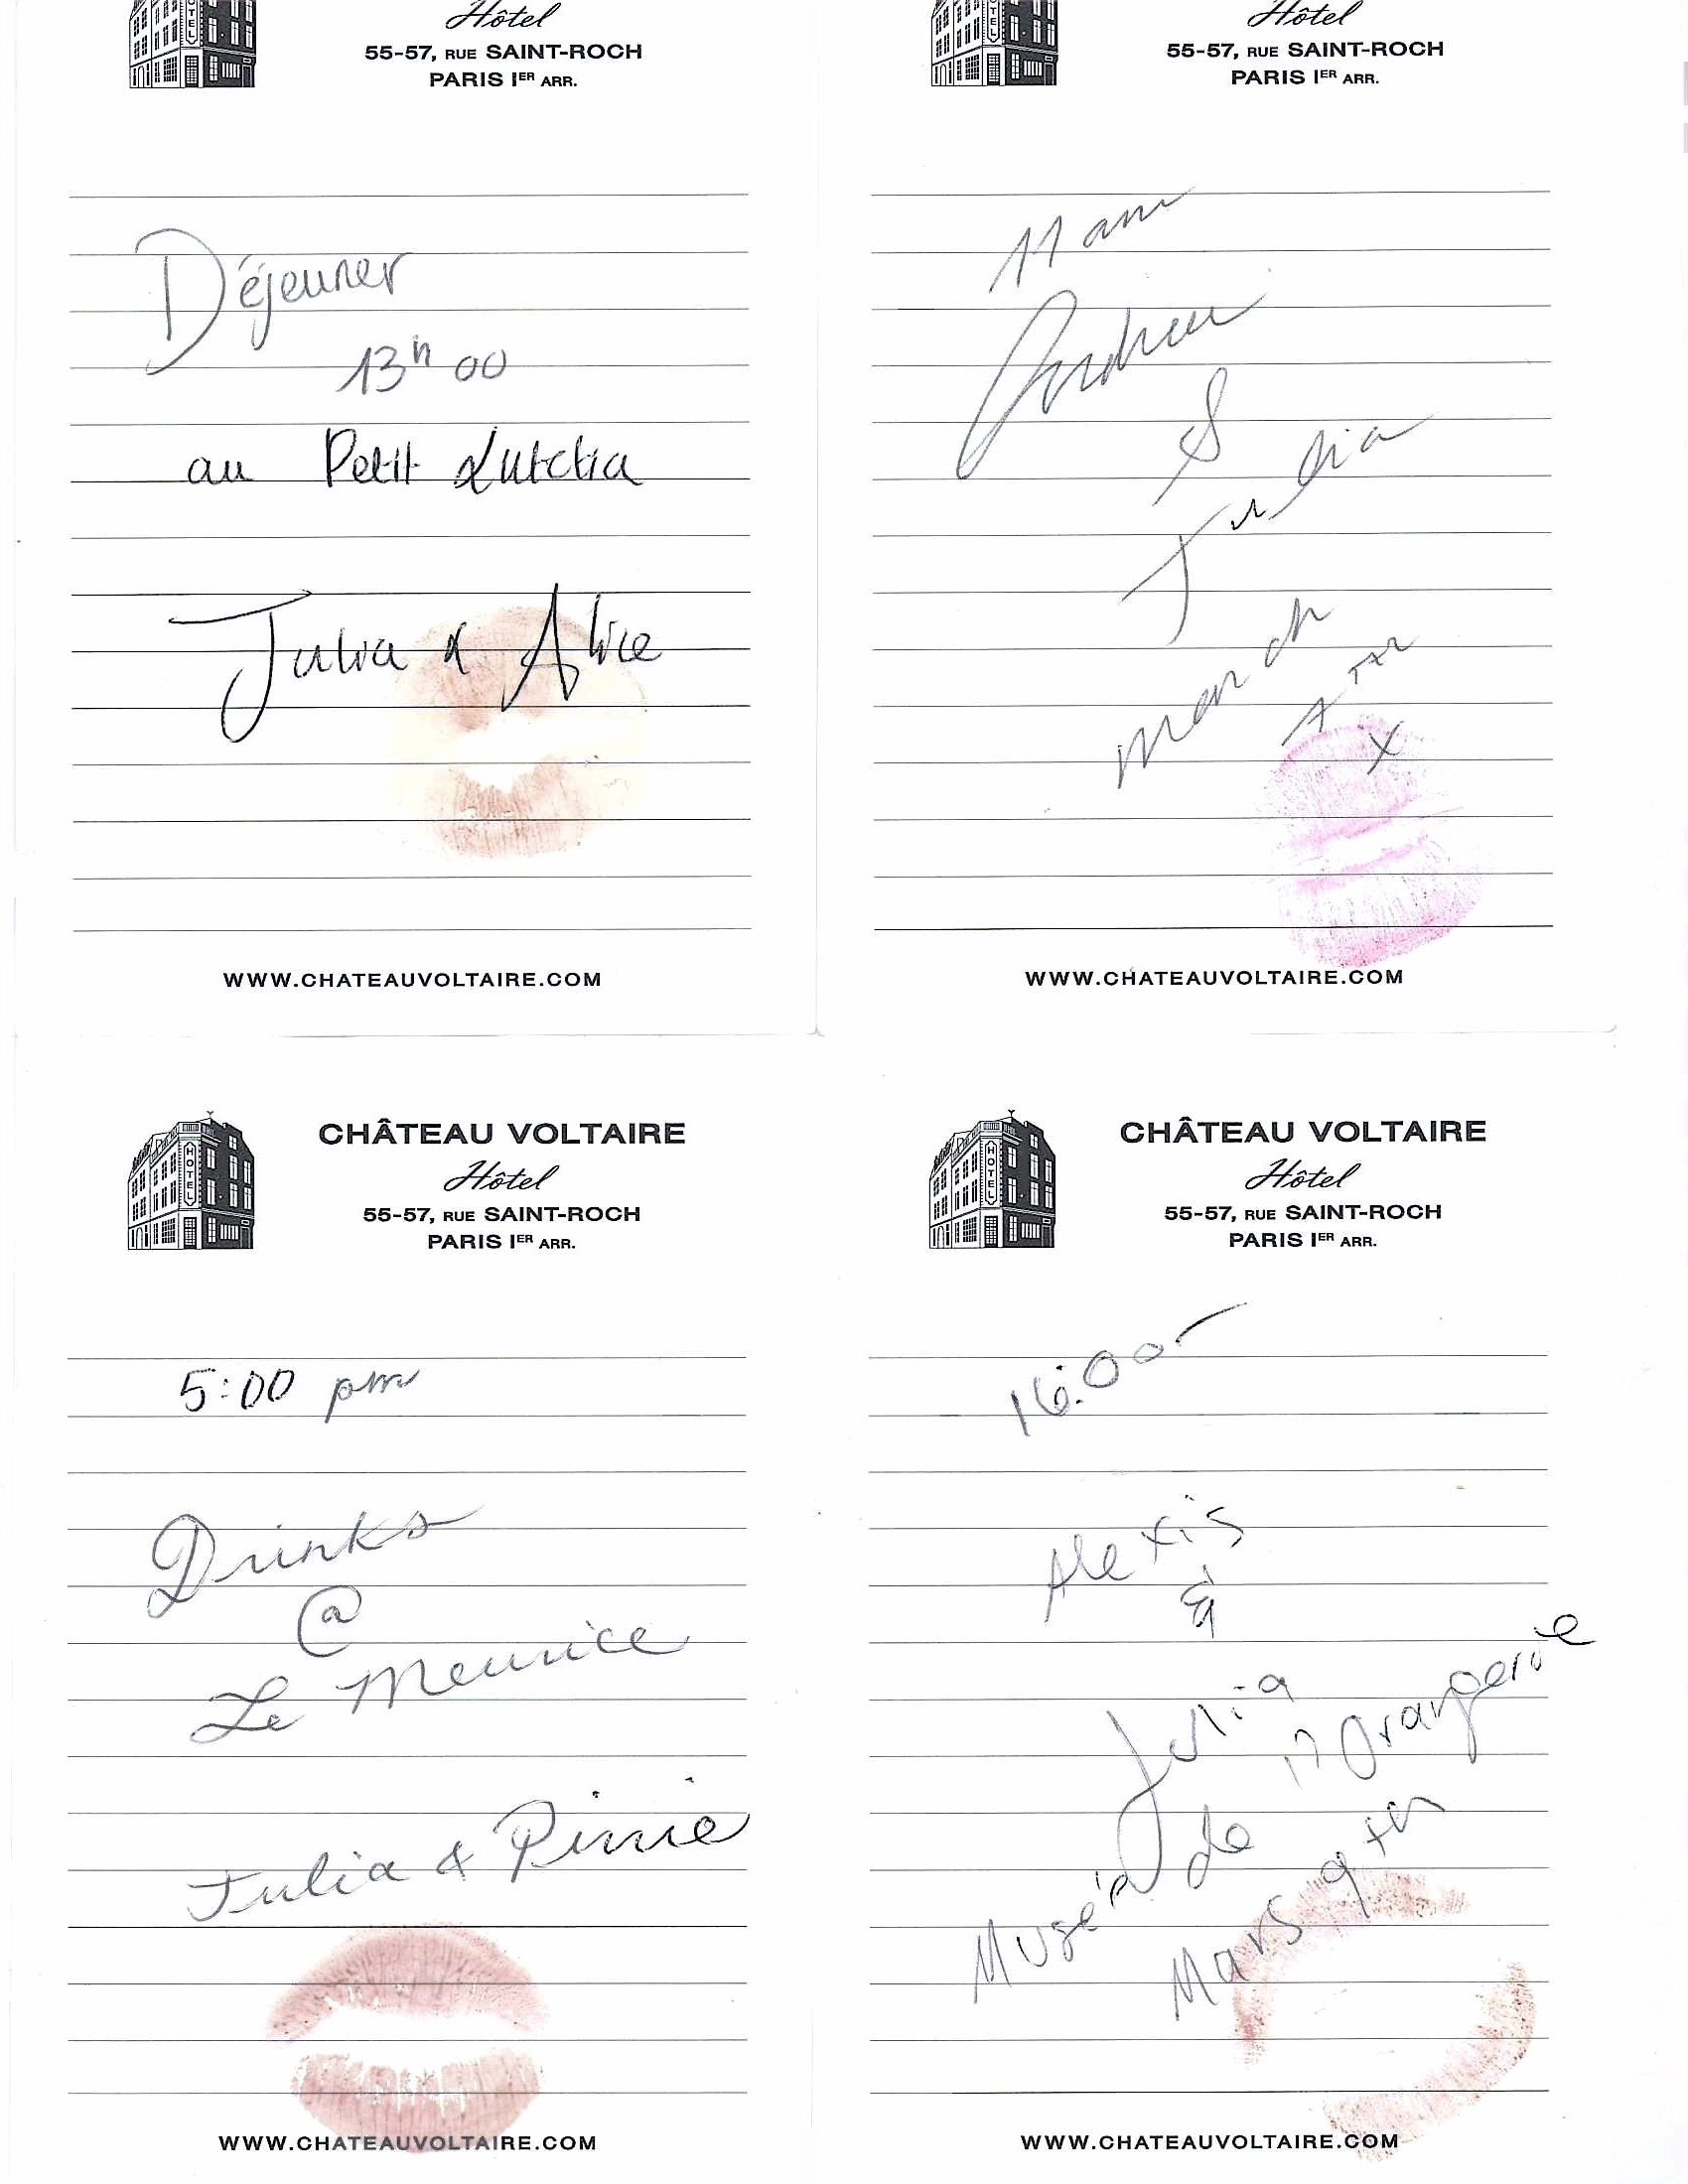 HOTEL
Hôtel
55-57, RUE SAINT-ROCH
PARIS IER ARR.
Déjeuner
13h00
au Petit Lutetia
Julia & Alice
WWW.CHATEAUVOLTAIRE.COM
HOTEL
Hôtel
55-57, RUE SAINT-ROCH
PARIS IER ARR.
11 am
Andrew
&
Julia
March
X
WWW.CHATEAUVOLTAIRE.COM
HOTEL
CHÂTEAU VOLTAIRE
Hôtel
55-57, RUE SAINT-ROCH
PARIS IER ARR.
5:00 pm
Drinks
@
Le Meurice
Julia &
WWW.CHATEAUVOLTAIRE.COM
HOTEL
CHÂTEAU VOLTAIRE
Hôtel
55-57, RUE SAINT-ROCH
PARIS IER ARR.
16:00
Alexis
&
Julia
Musée de l'Orangerie
Mars 9
WWW.CHATEAUVOLTAIRE.COM